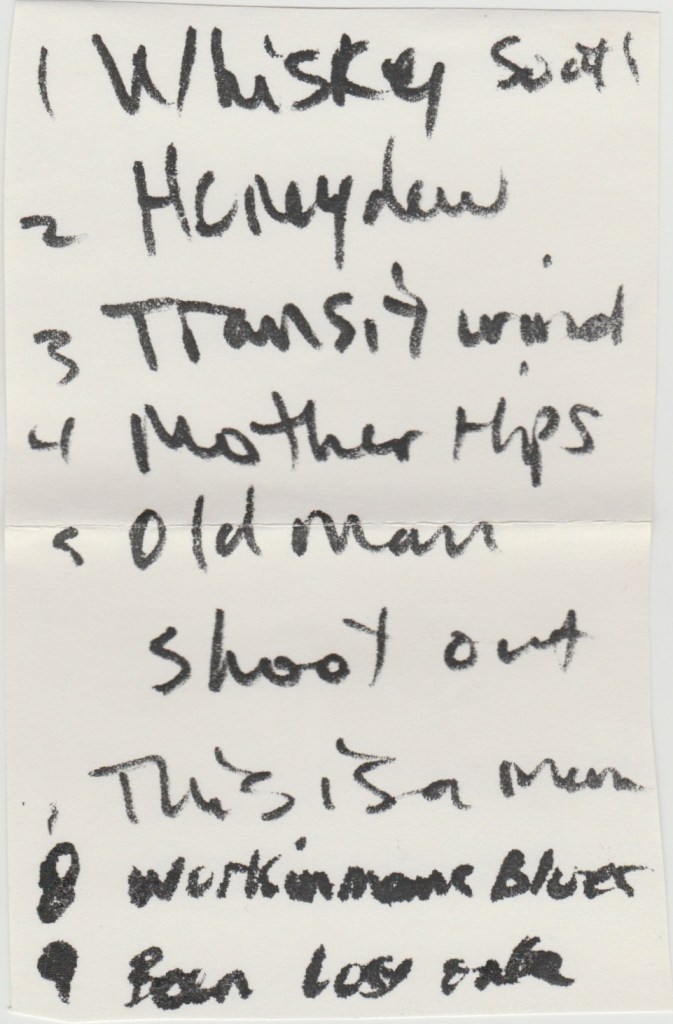 1 Whiskey
2 Honeydew
3 Transit wind
4 Mother Hips
5 Old man
shoot out
This is a
8 Workinmans Blues
9 Been lost